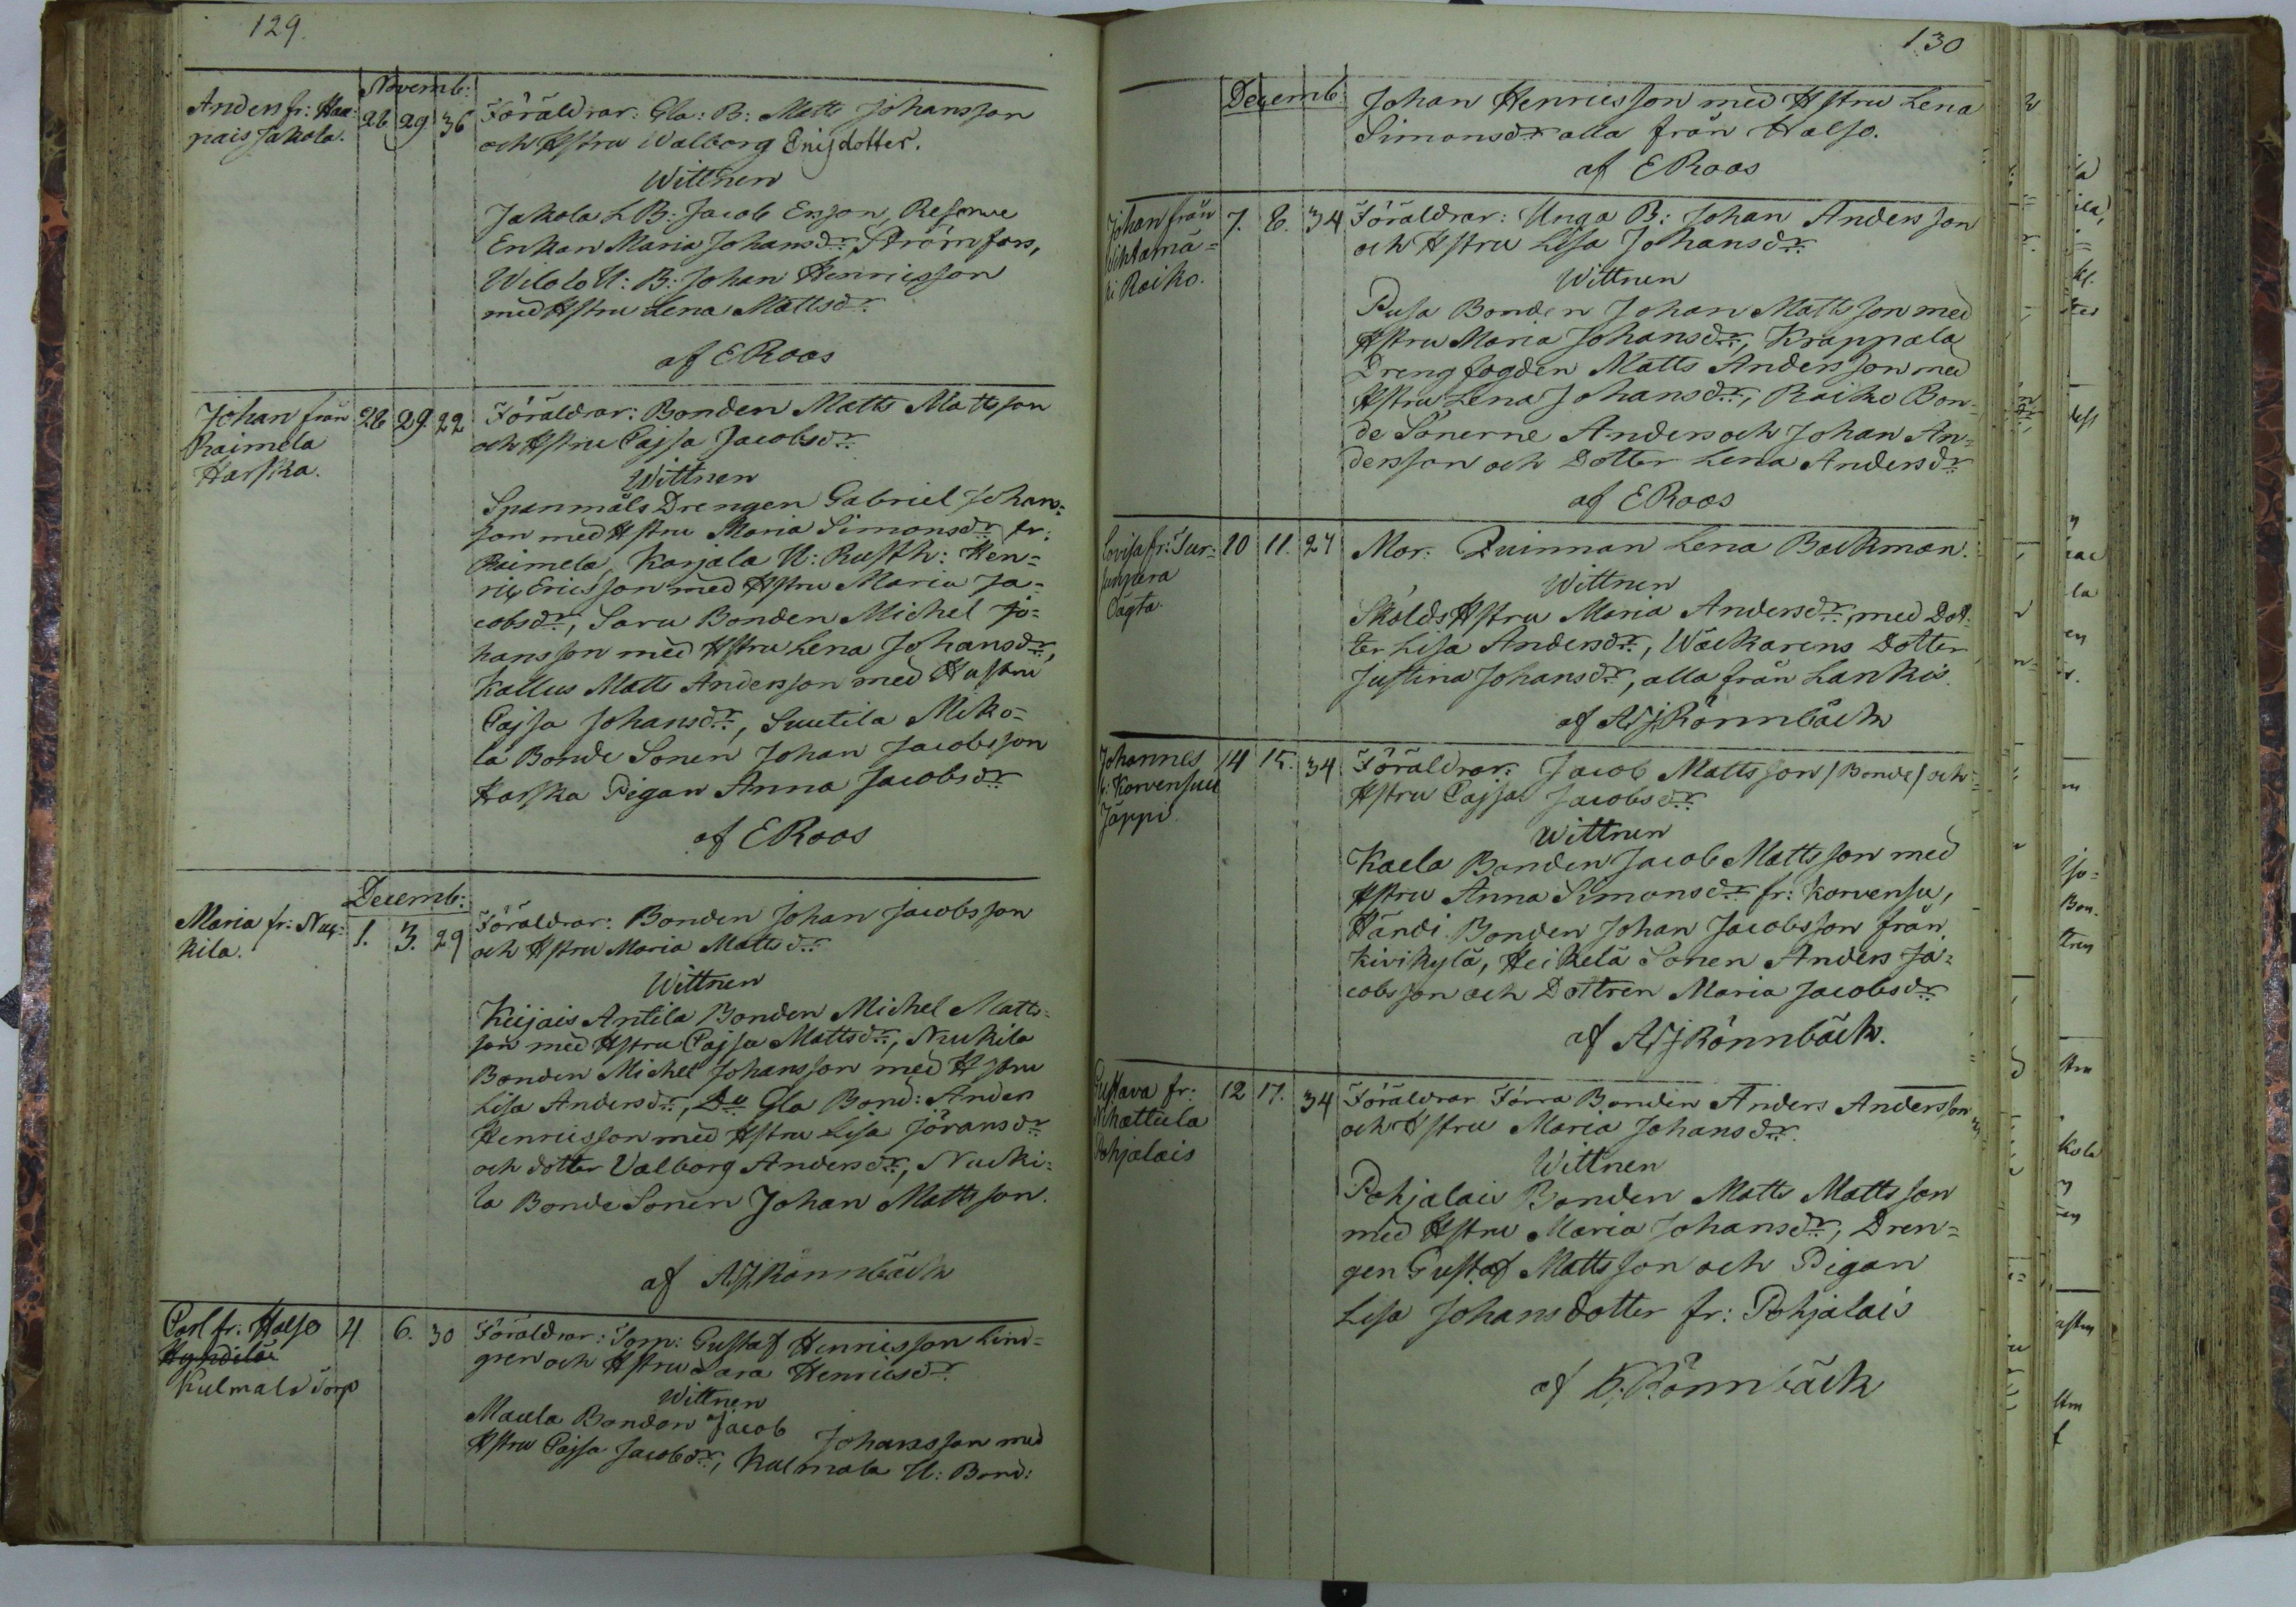 129.
Novemb:
Anders fr: Haa-
pais Jakola.
28 29 36
Föräldrar: Gla: B: Matts Johansson
och Hstru Walborg Ericsdotter.
Wittnen
Jakola L B: Jacob Ersson, Reserve
Enkan Maria Johansdr, Strömfors,
U: B: Johan Henricsson
med Hstru Lena Mattsdr
af E Roos
Johan från
Raimela
Harska.
28 29 22
Föräldrar: Bonden Matts Mattsson
och Hstru Cajsa Jacobsdr
Wittnen
Spanmåls Drengen Gabriel Johans-
son med Hstru Maria Simonsdr fr:
Raimela, Karjala U: Rusth: Hen-
ric Ericsson med Hstru Maria Ja-
cobsdr, Saru Bonden Michel Jo-
hansson med Hstru Lena Johansdr,
Kallus Matts Andersson med Hustru
Cajsa Johansdr, Suutila Miko-
la Bonde Sonen Johan Jacobsson
Harska Pigan Anna Jacobsdr
af E Roos
Decemb:
Maria fr: Nuc-
kila.
1. 3. 29
Föräldrar: Bonden Johan Jacobsson
och Hstru Maria Mattsdr
Wittnen
Keijais Antila Bonden Michel Matts-
son med Hstru Cajsa Mattsdr, Nuckila
Bonden Michel Johansson med Hstru
Lisa Andersdr, Do Gla Bond: Anders
Henricsson med Hstru Lisa Jöransdr
och dotter Valborg Andersdr, Nucki-
la Bonde Sonen Johan Mattsson.
af Rönnbäck
Carl fr: Halso
Kulmala Torp
4 6. 30
Föräldrar: Torp: Gustaf Henricsson Lind-
gren och Hstru Sara Henricsdr
Wittnen
Maula Bonden Jacob Johansson med
Hstru Cajsa Jacobsdr, Kulmala U: Bond:
130
Decemb:
Johan Henricsson med Hstru Lena
Simonsdr alla från Halso.
af E Roos
Johan från
Raiko.
7. 8. 34
Föräldrar: Unga B: Johan Andersson
och Hstru Lisa Johansdr
Wittnen
Pusa Bonden Johan Mattsson med
Hstru Maria Johansdr, Krappala
Drengfogden Matts Andersson med
Hstru Lena Johansdr, Raiko Bon-
de Sönerne Anders och Johan An-
dersson och Dotter Lena Andersdr
af E Roos
Lovisa fr:
10 11. 27
Mor: Quinnan Lena Backman.
Wittnen
Skölds Hstru Maria Andersdr med Dot-
ter Lisa Andersdr, Wäckarens Dotter
Justina Johansdr, alla från Lankis.
af Rönnbäck
Johannes
fr: Korvensuu
Jäppi.
14 15. 34
Föräldrar: Jacob Mattsson /Bonde/ och
Hstru Cajsa Jacobsdr
Wittnen
Kaela Bonden Jacob Mattsson med
Hstru Anna Simonsdr fr: Korvensu,
Händi Bonden Johan Jacobsson från
Kivikylä, Heikelä Sonen Anders Ja-
cobsson och Dottren Maria Jacobsdr
af Rönnbäck.
Gustava fr:
Pohjalais
12 17. 34
Föräldrar Förra Bonden Anders Andersson
och Hstru Maria Johansdr.
Wittnen
Pohjalais Bonden Matts Mattsson
med Hstru Maria Johansdr, Dren-
gen Gustaf Mattsson och Pigan
Lisa Johansdotter fr: Pohjalais
af Rönnbäck